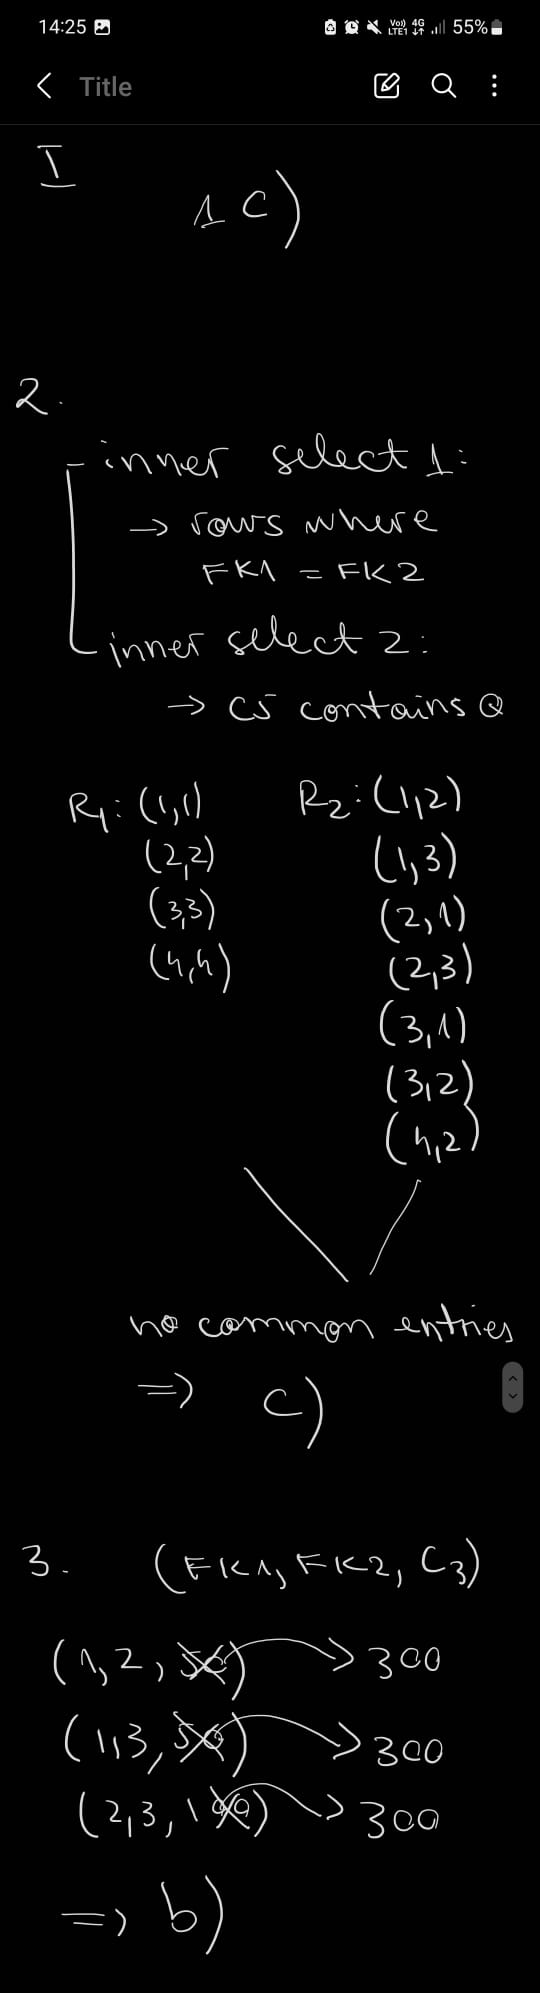 14:25 Vo)) 4G LTE1 55%
Title
I
1 c)
2.
inner select 1:
→ rows where
FK1 = FK2
inner select 2:
→ C5 contains Q
R1: (1,1) R2: (1,2)
(2,2) (1,3)
(3,3) (2,1)
(4,4) (2,3)
(3,1)
(3,2)
(4,2)
no common entries
=> c)
3. (FK1, FK2, C3)
(1, 2, 50) → 300
(1,3, 50) → 300
(2,3, 100) → 300
=> b)